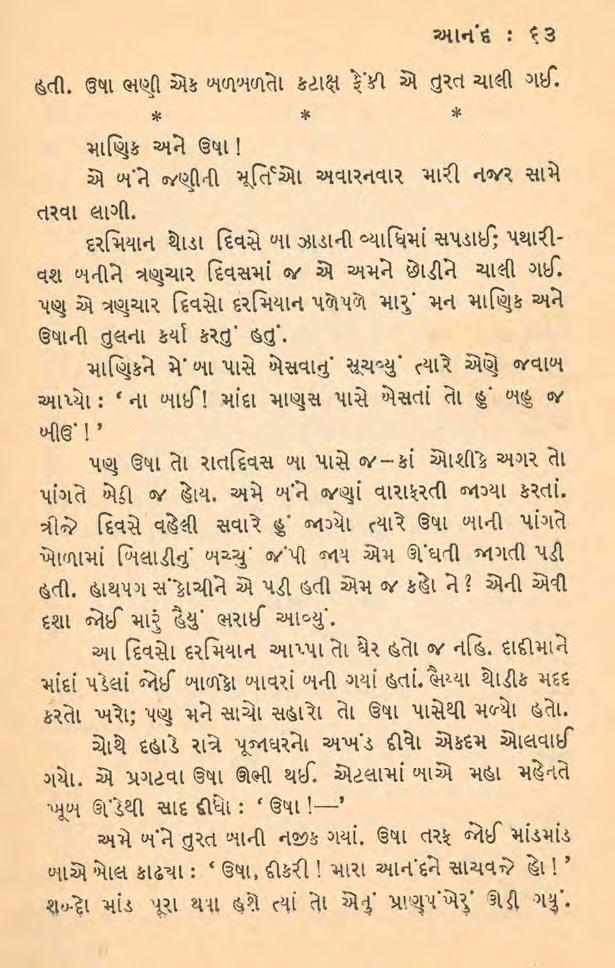 આનંદ : ૬૩
હતી. ઉષા ભણી એક બળબળતો કટાક્ષ ફેંકી એ તુરત ચાલી ગઈ.
* * *
માણિક અને ઉષા !
એ બંને જણીની મૂર્તિઓ અવારનવાર મારી નજર સામે
તરવા લાગી.
દરમિયાન થોડા દિવસે બા ઝાડાની વ્યાધિમાં સપડાઈ; પથારી-
વશ બનીને ત્રણચાર દિવસમાં જ એ અમને છોડીને ચાલી ગઈ.
પણ એ ત્રણચાર દિવસો દરમિયાન પળેપળે મારું મન માણિક અને
ઉષાની તુલના કર્યા કરતું હતું.
માણિકને મેં બા પાસે બેસવાનું સૂચવ્યું ત્યારે એણે જવાબ
આપ્યો : ‘ ના બાઈ! માંદા માણસ પાસે બેસતાં તો હું બહુ જ
બીઉં ! ’
પણ ઉષા તો રાતદિવસ બા પાસે જ – કાં ઓશીકે અગર તો
પાંગતે બેઠી જ હોય. અમે બંને જણાં વારાફરતી જાગ્યા કરતાં.
ત્રીજે દિવસે વહેલી સવારે હું જાગ્યો ત્યારે ઉષા બાની પાંગતે
ખોળામાં બિલાડીનું બચ્ચું જંપી જાય એમ ઊંઘતી જાગતી પડી
હતી. હાથપગ સંકોચીને એ પડી હતી એમ જ કહો ને? એની એવી
દશા જોઈ મારું હૈયું ભરાઈ આવ્યું.
આ દિવસો દરમિયાન આપ્પા તો ઘેર હતો જ નહિ. દાદીમાને
માંદાં પડેલાં જોઈ બાળકો બાવરાં બની ગયાં હતાં. ભૈય્યા થોડીક મદદ
કરતો ખરો; પણ મને સાચો સહારો તો ઉષા પાસેથી મળ્યો હતો.
ચોથે દહાડે રાત્રે પૂજાઘરનો અખંડ દીવો એકદમ ઓલવાઈ
ગયો. એ પ્રગટવા ઉષા ઊભી થઈ. એટલામાં બાએ મહા મહેનતે
ખૂબ ઊંડેથી સાદ દીધો : ‘ ઉષા !—’
અમે બંને તુરત બાની નજીક ગયાં. ઉષા તરફ જોઈ માંડમાંડ
બાએ બોલ કાઢયા : ‘ ઉષા, દીકરી ! મારા આનંદને સાચવજે હો ! ’
શબ્દો માંડ પૂરા થયા હશે ત્યાં તો એનું પ્રાણપંખેરું ઊડી ગયું.